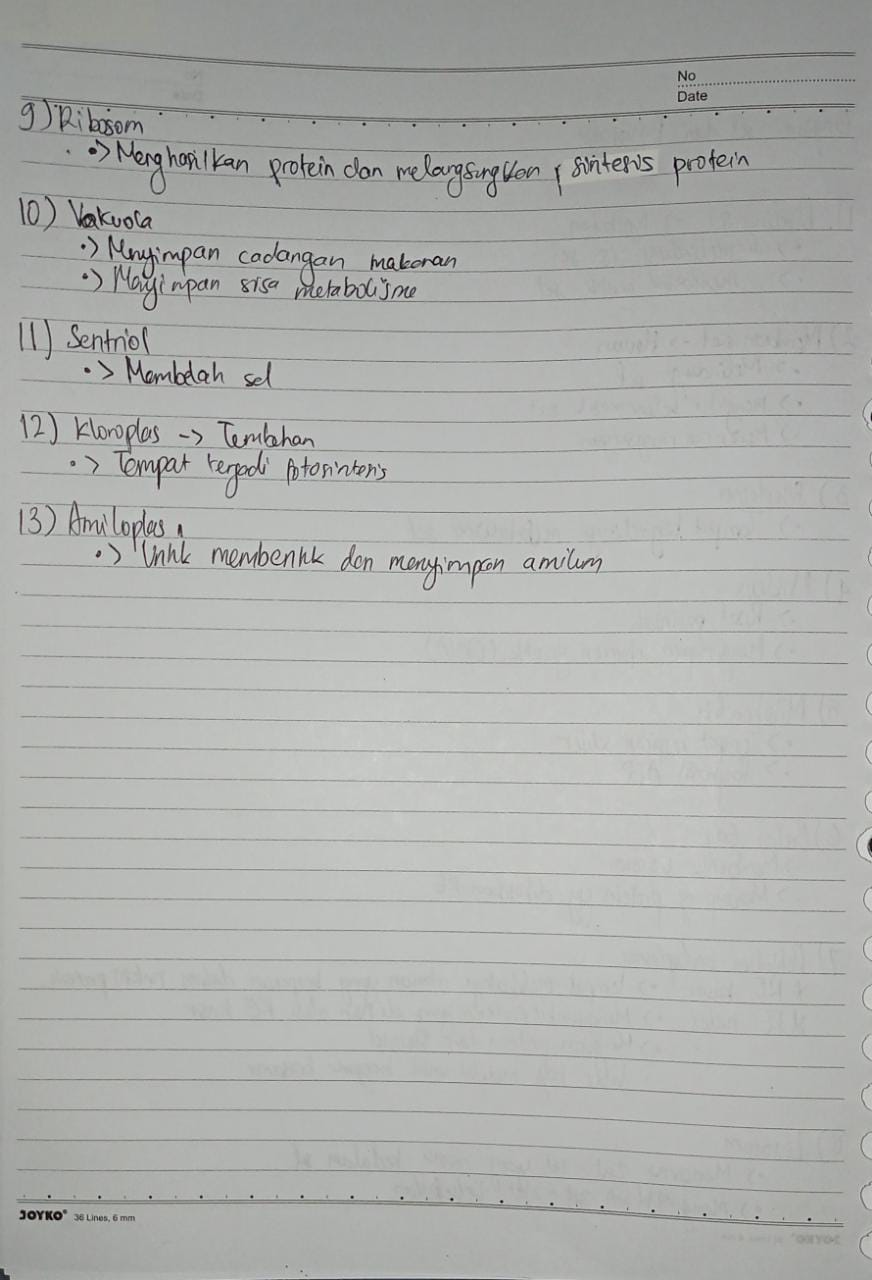 No
Date
9) Ribosom
•> Menghasilkan protein dan melangsungkan sintesis protein
10) Vakuola
•> Menyimpan cadangan makanan
•> Menyimpan sisa metabolisme
11) Sentriol
•> Membelah sel
12) Kloroplas -> Tumbuhan
•> Tempat terjadi fotosintesis
13) Amiloplas
•> Untuk membentuk dan menyimpan amilum
JOYKO® 36 Lines, 6 mm